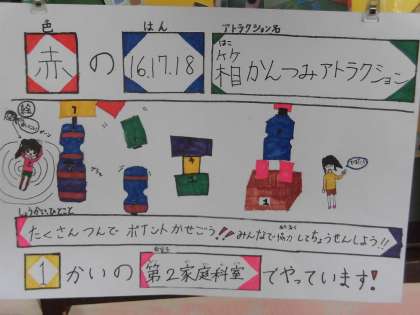 色 はん アトラクション名
赤 の 16.17.18 箱かんつみアトラクション
はこ
絵
しょうかい、ひとこと
たくさんつんで ポイントかせごう!! みんなで協力してちょうせんしよう!!
1 かいの 第2家庭科室 でやっています!